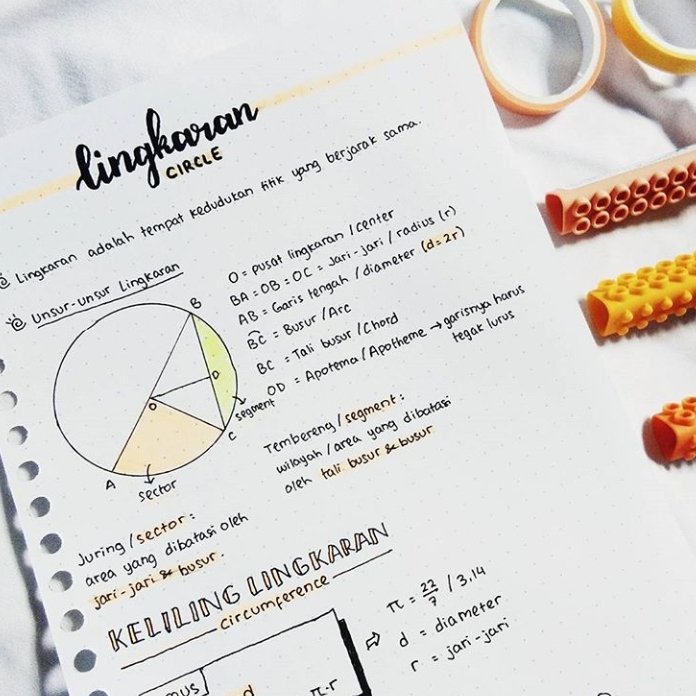 lingkaran
CIRCLE
Lingkaran adalah tempat kedudukan titik yang berjarak sama.
Unsur-unsur Lingkaran
O = pusat lingkaran / center
BA = OB = OC = Jari-jari / radius (r)
AB = Garis tengah / diameter (d=2r)
BC = Busur / Arc
BC = Tali busur / Chord
OD = Apotema / Apotheme → garisnya harus
tegak lurus
B
D
O
segment
C
A
sector
Tembereng / segment :
wilayah / area yang dibatasi
oleh tali busur & busur
Juring / sector :
area yang dibatasi oleh
jari-jari & busur.
KELILING LINGKARAN
circumference
π = 22/7 / 3,14
d = diameter
r = jari-jari
d
π.r